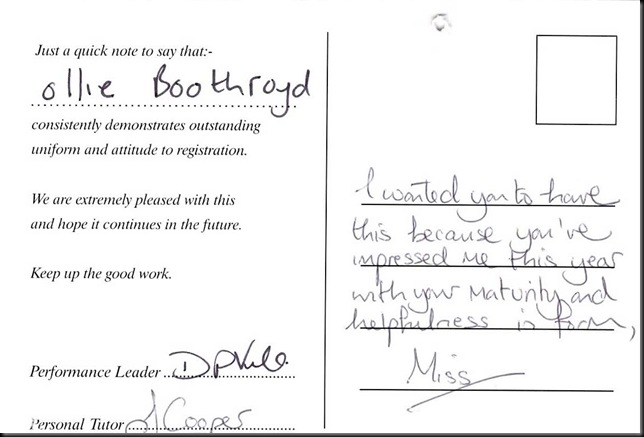 Just a quick note to say that:-
ollie Boothroyd
consistently demonstrates outstanding
uniform and attitude to registration.
We are extremely pleased with this
and hope it continues in the future.
Keep up the good work.
Performance Leader
Personal Tutor J Cooper
I wanted you to have
this because you've
impressed me this year
with your maturity and
helpfulness in form,
Miss